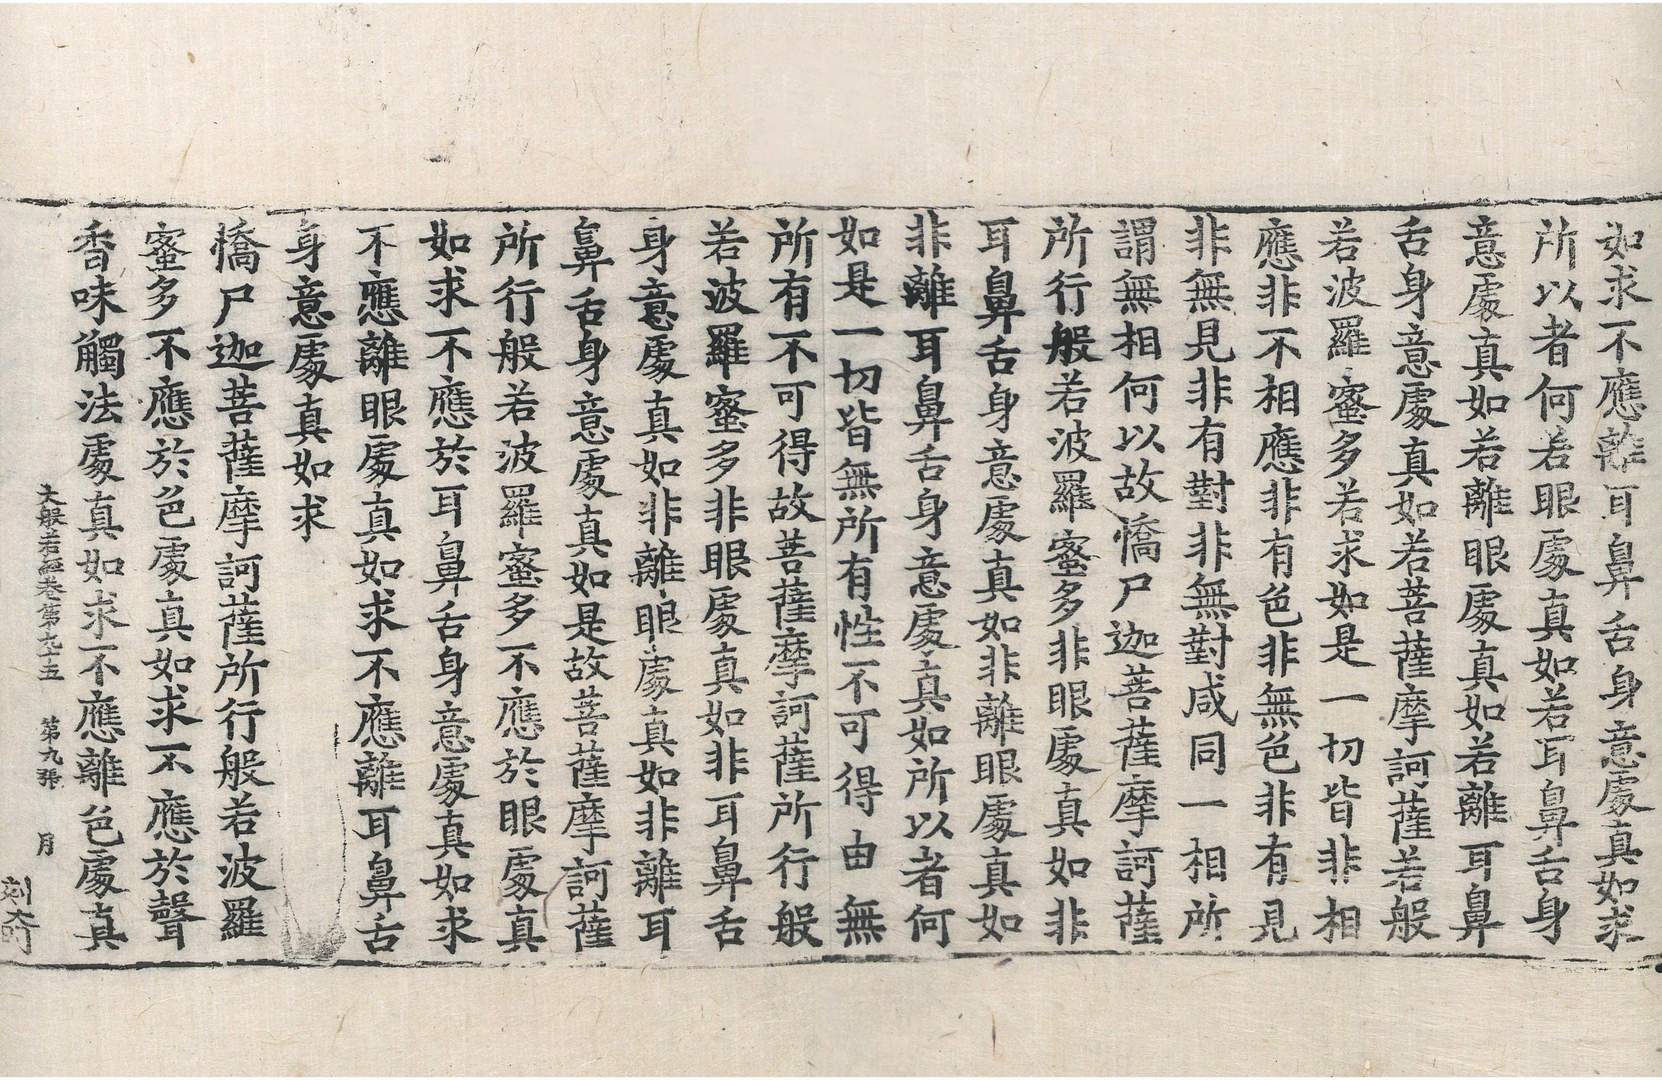 如求不應離耳鼻舌身意處真如求
所以者何若眼處真如若耳鼻舌身
意處真如若離眼處真如若離耳鼻
舌身意處真如若菩薩摩訶薩若般
若波羅蜜多若求如是一切皆非相
應非不相應非有色非無色非有見
非無見非有對非無對咸同一相所
謂無相何以故憍尸迦菩薩摩訶薩
所行般若波羅蜜多非眼處真如非
耳鼻舌身意處真如非離眼處真如
非離耳鼻舌身意處真如所以者何
如是一切皆無所有性不可得由無
所有不可得故菩薩摩訶薩所行般
若波羅蜜多非眼處真如非耳鼻舌
身意處真如非離眼處真如非離耳
鼻舌身意處真如是故菩薩摩訶薩
所行般若波羅蜜多不應於眼處真
如求不應於耳鼻舌身意處真如求
不應離眼處真如求不應離耳鼻舌
身意處真如求
憍尸迦菩薩摩訶薩所行般若波羅
蜜多不應於色處真如求不應於聲
香味觸法處真如求不應離色處真
大般若經卷第九十五 第九張 月
刻奇